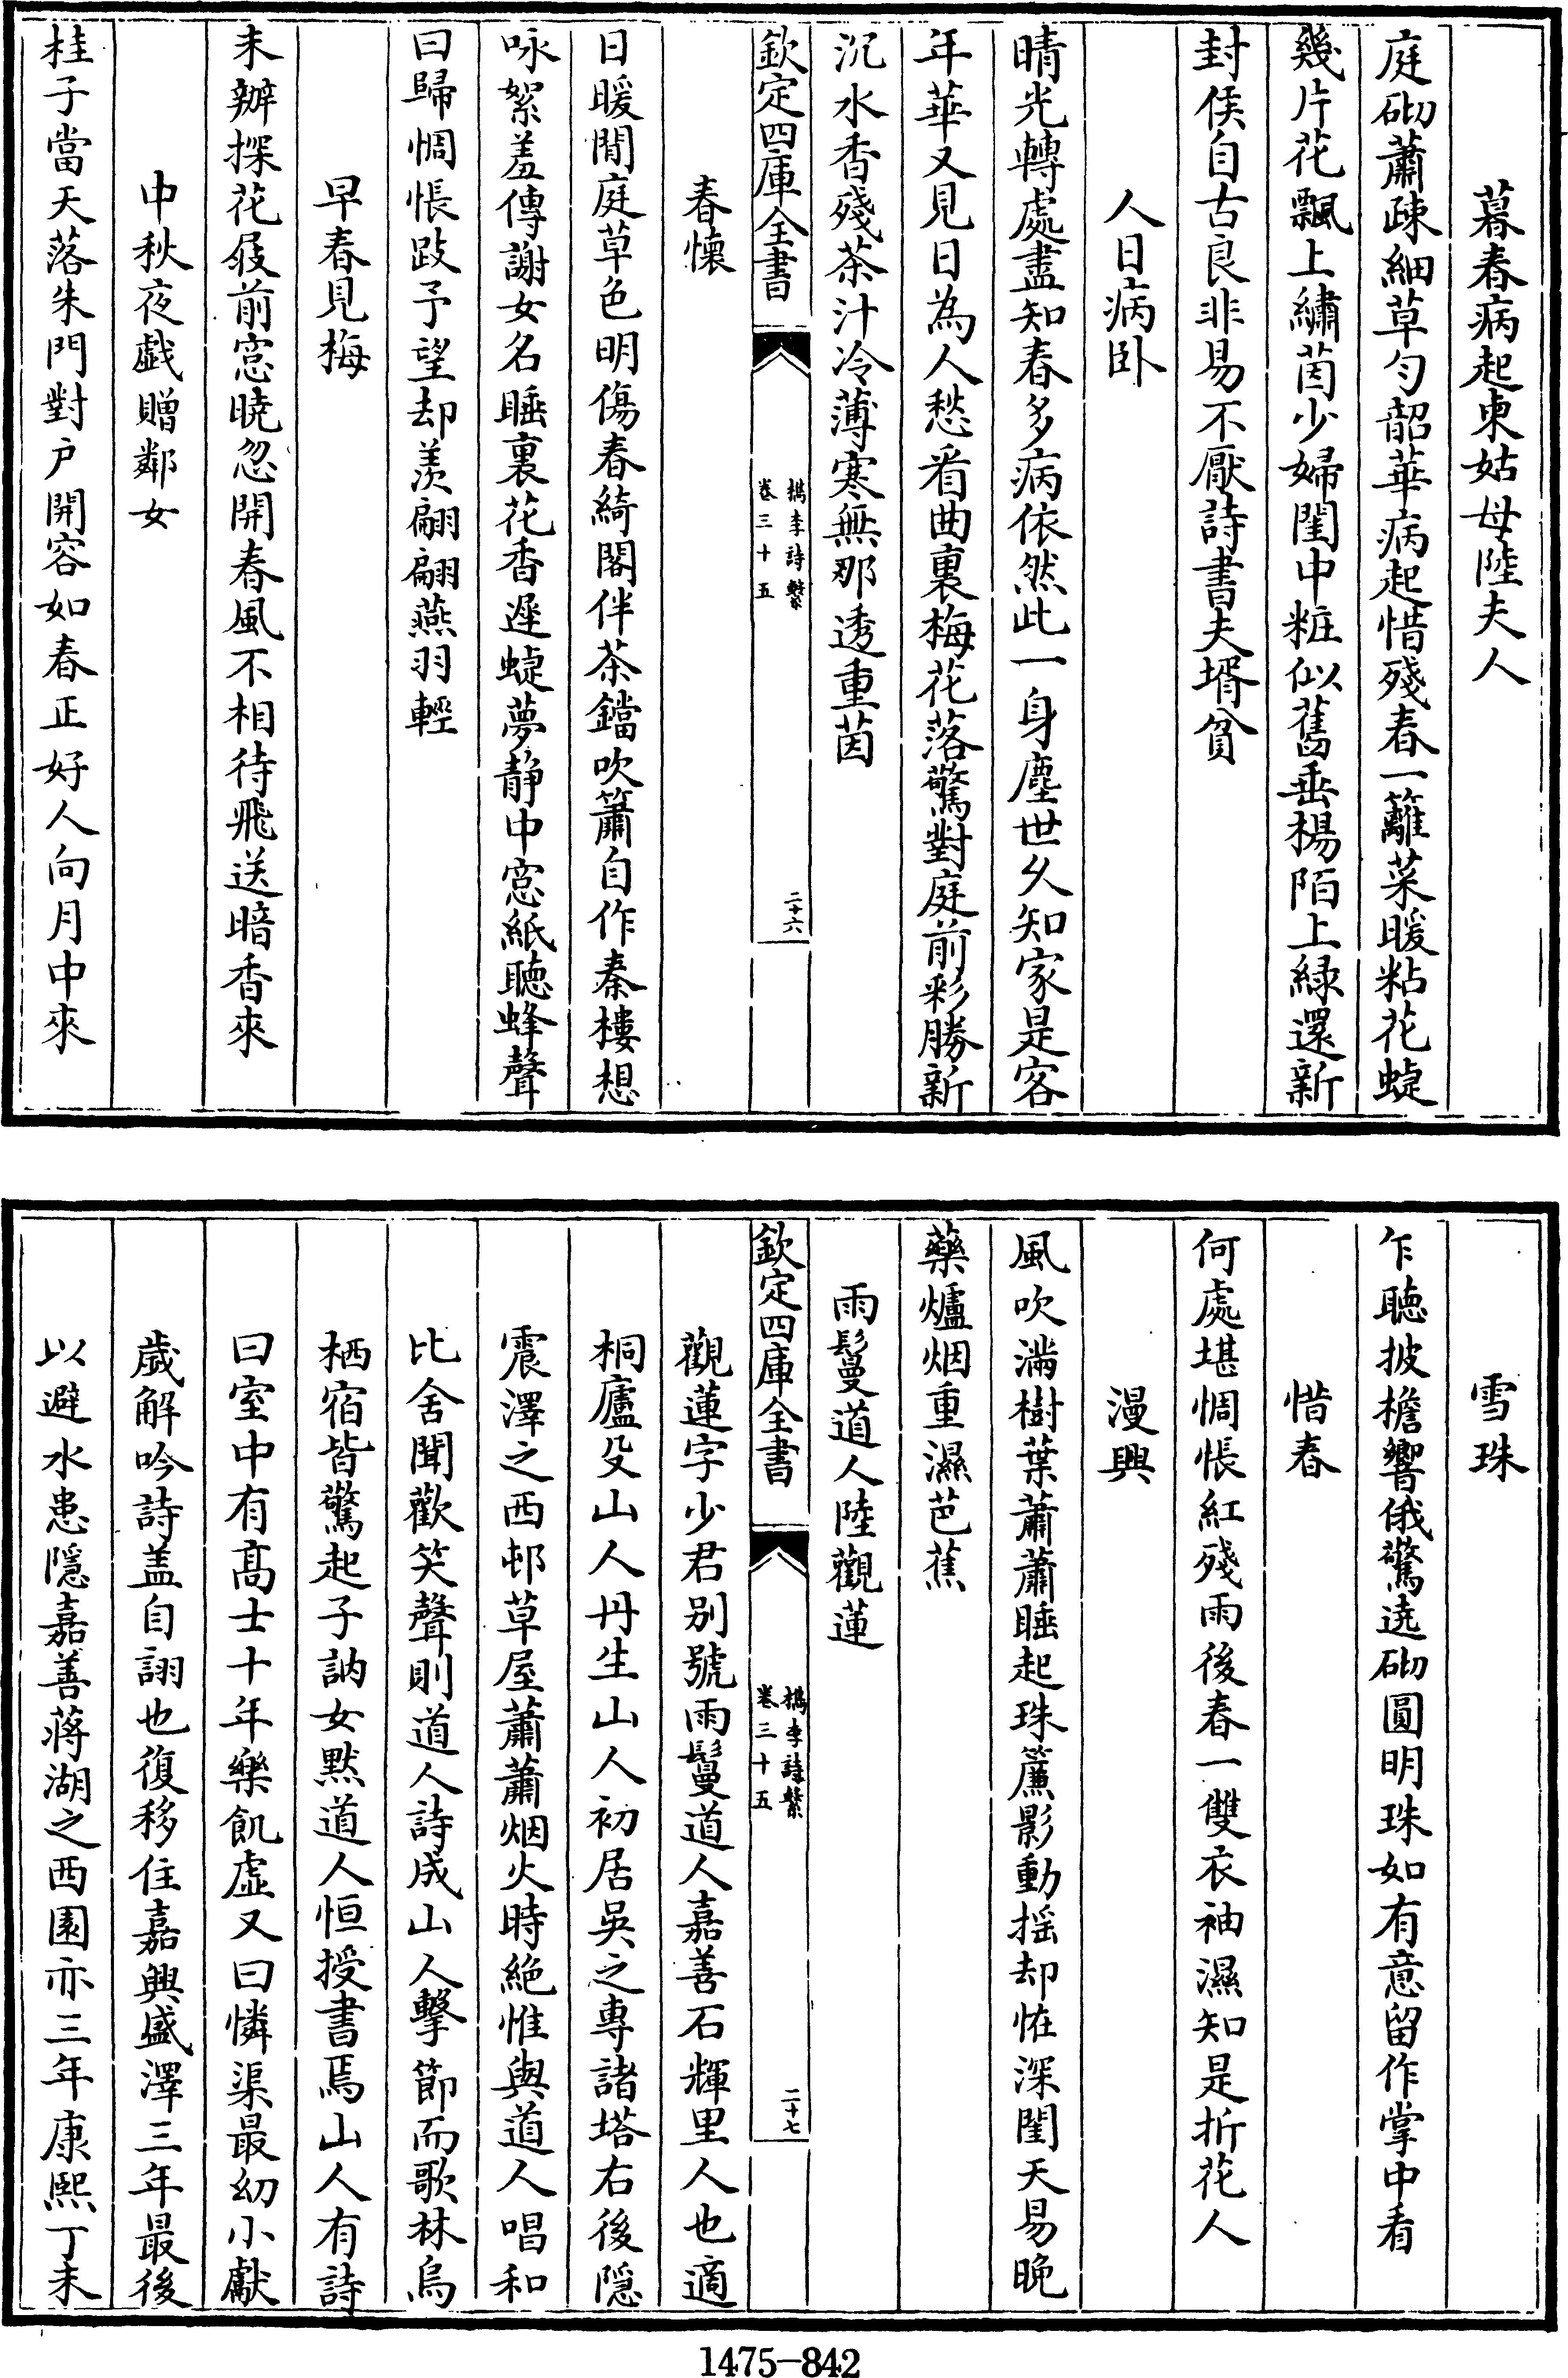 暮春病起柬姑母陸夫人
庭砌蕭疎細草勻韶華病起惜殘春一籬菜暖粘花蜨
幾片花飄上繡茵少婦閨中粧似舊垂楊陌上緑還新
封侯自古良非易不厭詩書夫壻貧
人日病卧
晴光轉處盡知春多病依然此一身塵世乆知家是客
年華又見日為人愁看曲裏梅花落驚對庭前彩勝新
沉水香殘茶汁冷薄寒無那透重茵
欽定四庫全書
檇李詩繫
卷三十五
二十六
春懐
日暖閒庭草色明傷春綺閣伴茶鐺吹簫自作秦樓想
咏絮羞傳謝女名睡裏花香遲蜨夢静中窓紙聴蜂聲
曰歸惆悵跂予望却羨翩翩燕羽輕
早春見梅
未辦探花屐前窓曉忽開春風不相待飛送暗香來
中秋夜戯贈鄰女
桂子當天落朱門對户開容如春正好人向月中來
雪珠
乍聴披檐響俄驚遶砌圓明珠如有意留作掌中看
惜春
何處堪惆悵紅殘雨後春一雙衣袖濕知是折花人
漫興
風吹滿樹葉蕭蕭睡起珠簾影動摇却恠深閨天易晚
藥爐烟重濕芭蕉
雨鬘道人陸觀蓮
欽定四庫全書
檇李詩繫
卷三十五
二十七
觀蓮字少君别號雨鬘道人嘉善石輝里人也適
桐廬殳山人丹生山人初居吳之專諸塔右後隱
震澤之西邨草屋蕭蕭烟火時絶惟與道人唱和
比舍聞歡笑聲則道人詩成山人擊節而歌林烏
栖宿皆驚起子訥女黙道人恒授書焉山人有詩
曰室中有髙士十年樂飢虚又曰憐渠最幼小獻
歲解吟詩盖自詡也復移住嘉興盛澤三年最後
以避水患隱嘉善蔣湖之西園亦三年康熙丁未
1475-842